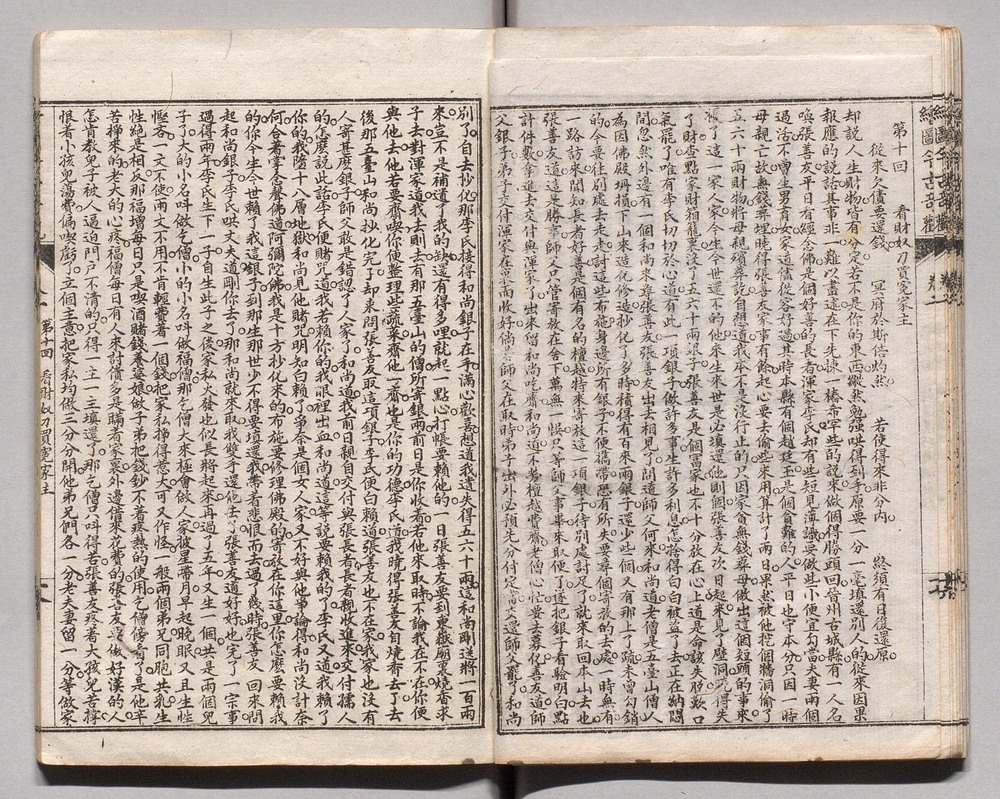 繪圖今古奇觀
第十回　看財奴刁買冤家主
從來欠債要還錢　冥府於斯倍灼然　若使得來非分內　終須有日復還原
却說人生財物皆有分定若不是你的東西縱然勉强哄得到手原要一分一毫填還別人的從來因果
報應的說話其事非一難以盡述在下先揀一樁希罕些的說來做個得勝頭回晉州古城縣有一人名
喚張善友平日看經念佛是個好善的長者渾家李氏却有些短見薄識要做些小便宜勾當夫妻兩個
過活不曾生男育女家道儘從容好過其時本縣有個趙廷玉是個貧難的人平日也守本分只因一時
母親亡故無錢葬埋曉得張善友家事有餘起心要去偷些來用算計了兩日果然被他挖個牆洞偷了
五六十兩財物將母親殯葬訖自想道我本不是沒行止的只因家貧無錢葬母做出這個短頭的事來
了這一家人家今生今世還不的他來生來世是必填還他則個張善友次日起來見了壁洞曉得失
了財查點家財箱籠裏沒了五六十兩銀子張善友是個富家也不十分放在心上道是命該失脫歎口
氣罷了唯有李氏切切於心道有此一項銀子做許多事生許多利息怎捨得白白被盜了去正在納悶
間忽然外邊有一個和尚來尋張善友張善友出去相見了問道師父何來和尚道老僧是五臺山僧人
為因佛殿坍損下山來造化修造抄化了多時積得有百來兩銀子還少些個又有那上了疏未曾勾銷
的今要往別處去走走討這些布施身邊所有銀子不便攜帶恐有所失要尋個寄放的去處一時無有
一路訪來聞知長者好善是個有名的檀越特來寄放這一項銀子待別處討足了就來取回本山去也
張善友道這是勝事師父只管寄放在舍下萬無一悞只等師父事畢來取便了遂把銀子看驗明白點
計件數拿進去交付與渾家了出來留和尚吃齋和尚道不勞檀越費齋老僧心忙要去募化善友道師
父銀子弟子交付渾家在裏面收好倘若師父在取時弟子出外必預先分付停當交還師父罷了和尚
別了自去抄化那李氏接得和尚銀子在手滿心歡喜想道我纔失得五六十兩這和尚剛送將一百兩
來豈不是補還了我的缺還有得多哩就起一點心打帳要賴他的一日張善友要到東嶽廟裏燒香求
子去對渾家道我去則去有那五臺山的僧所寄銀兩前日是你收着若他來取時不論我在不在你便
與他去他若要齋喫你便整理些蔬菜齋他一齋也是你的功德李氏道我曉得張善友自燒香去了去
後那五臺山和尚抄化完了却來問張善友取這項銀子李氏便白賴道張善友也不在家我家也沒有
人寄甚麼銀子師父敢是錯認了人家了和尚道我前日親自交付與張長者長者親收進來交付孺人
的怎麼說此話李氏便賭咒道我若賴你的我眼裡出血和尚道這等說要賴我的了李氏又道我賴了
你的我墮十八層地獄和尚見他賭咒明知白賴了爭奈是個女人家又不好與他爭論得和尚沒計奈
何合着掌念聲佛道阿彌陀佛我是十方抄化來的布施要修理佛殿的寄放在你這里你怎麼要賴我
的你今生今世賴了我這銀子到那生那世少不得要填還我帶着悲恨而去過了幾時張善友回來問
起和尚銀子李氏哄丈夫道剛你去了那和尚就來取我雙手還他去了張善友道好好也完了一宗事
過得兩年李氏生下一子自生此子之後家私火發也似長將起來再過了五年又生一個共是兩個兒
子了大的小名呌做乞僧小的小名呌做福僧那乞僧大來極會做人家披星帶月早起晚眠又且生性
慳吝一文不使兩文不用不肯輕費着一個錢把家私掙得惹大可又作怪一般兩個弟兄同胞共乳生
性絕是相反那福僧每日只是喫酒賭錢養婆娘做子弟把錢鈔不着疼熱的使用乞僧傍看了是他辛
苦掙來的老大的心疼福僧每日有人來討債多是瞞着家裏外邊借來花費的張善友要做好漢的人
怎肯教兒子被人逼迫門戶不清的只得一主一主填還了那乞僧只呌得苦張善友疼着大孩兒苦掙
恨着小孩兒蕩費偏喫虧了立個主意把家私均做三分分開他弟兄們各一分老夫妻留一分等做家
第十四　看財奴刁買冤家主